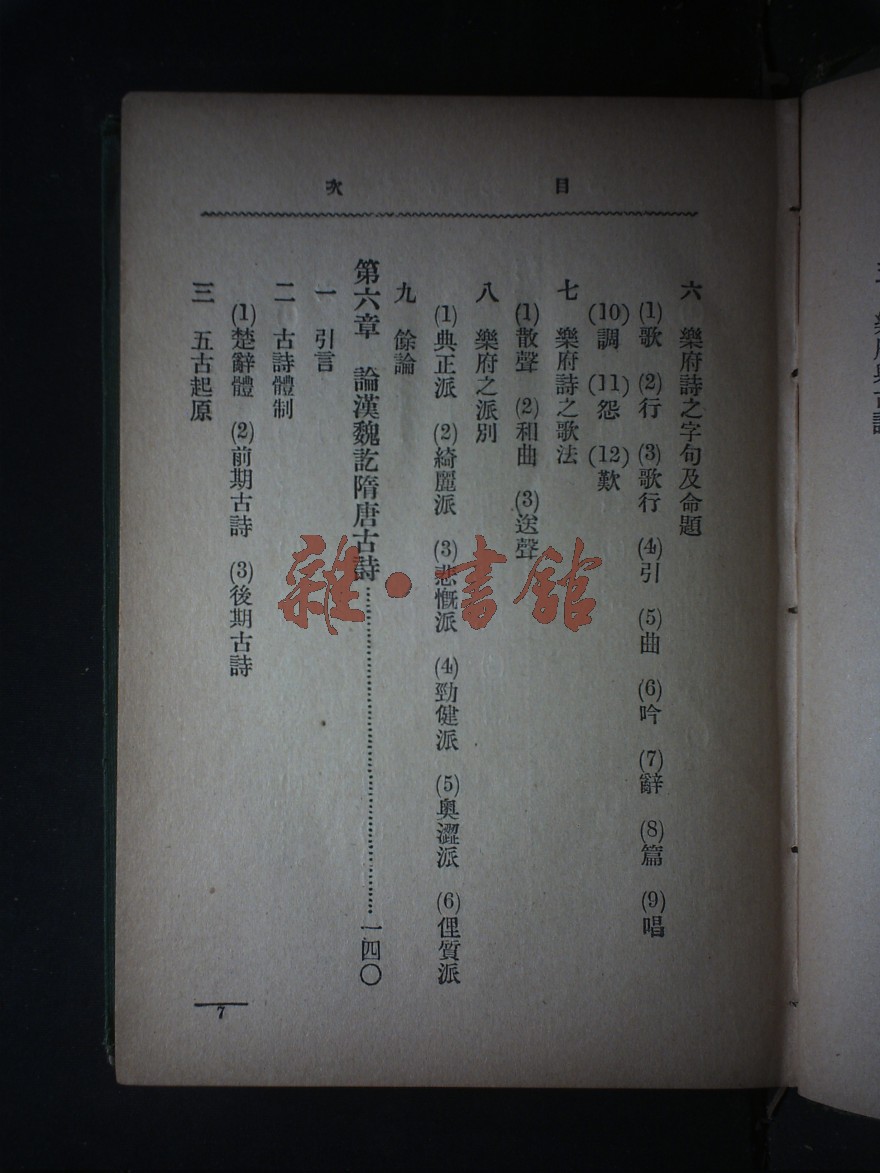 目次
六　樂府詩之字句及命題
(1)歌　(2)行　(3)歌行　(4)引　(5)曲　(6)吟　(7)辭　(8)篇　(9)唱
(10)調　(11)怨　(12)歎
七　樂府詩之歌法
(1)散聲　(2)和曲　(3)送聲
八　樂府之派別
(1)典正派　(2)綺麗派　(3)悲慨派　(4)勁健派　(5)奧澀派　(6)俚質派
九　餘論
第六章　論漢魏訖隋唐古詩……一四〇
一　引言
二　古詩體制
(1)楚辭體　(2)前期古詩　(3)後期古詩
三　五古起原
7
雜·書館